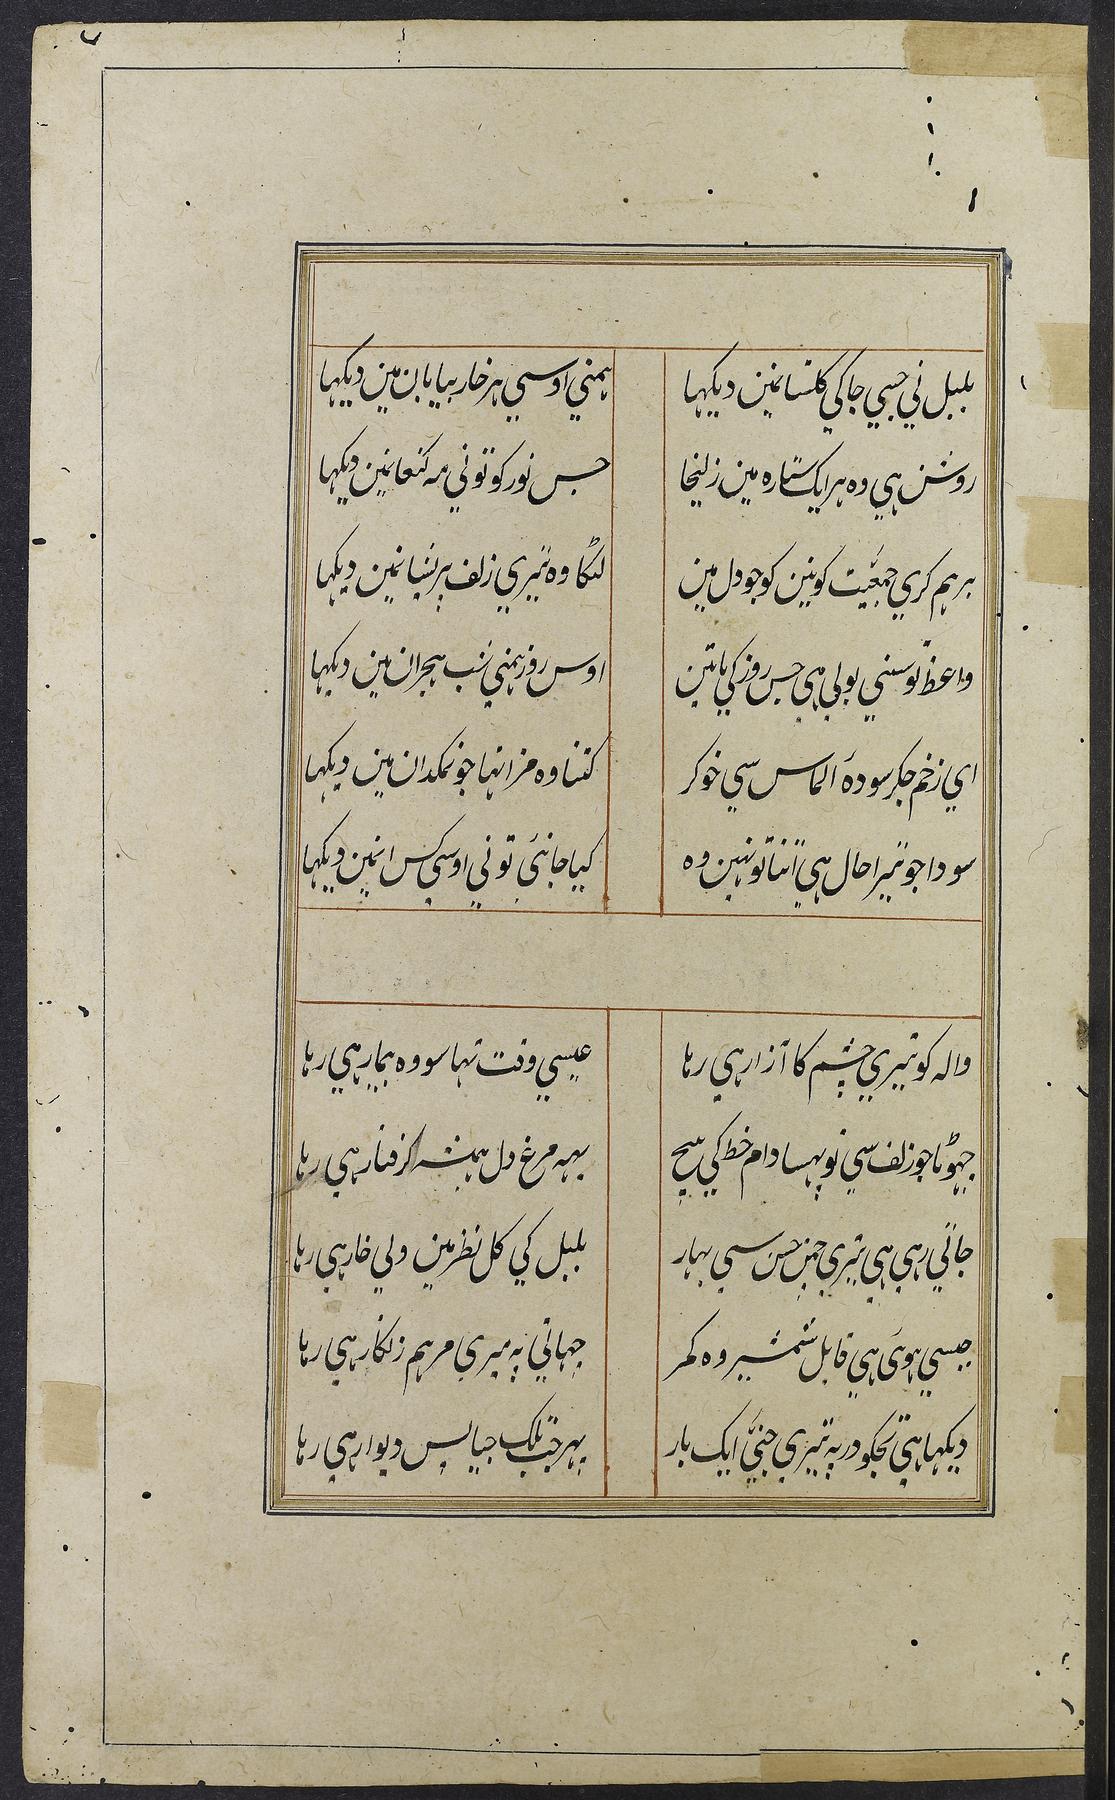 بلبل ني جسي جاكي گلستانمین دیکہا ہمني اوسي ہر خار بیابان مین دیکہا
روشن ہي وہ ہر ایک ستارہ مین زلیخا جس نور کو توني مہ کنعانمین دیکہا
برہم کري جمعیّت کونین کو جو دل مین لٹکا وہ تیري زلف پریشانمین دیکہا
واعظ تو سني بولي ہي جس روز کي باتین اوس روز ہمني شب ہجران مین دیکہا
اي زخم جگر سودۂ الماس سي خو کر کتنا وہ مزا تہا جو نمکدان مین دیکہا
سودا جو تیرا حال ہي اتنا تو نہین وہ کیا جانئی توني اوسي کس انمین دیکہا
والہ کو تیري چشم کا آزار ہي رہا عیسي وقت تہا سو وہ بیمار ہي رہا
چہوٹا جو زلف سي تو پہسا دام خط کي بیچ یہہ مرغ دل ہمیشہ گرفتار ہي رہا
جاتي رہي ہي تیري چمن حسن سي بہار بلبل کي گل نظر مین ولي خار ہي رہا
جیسي ہوئی ہي قابل شمشیر وہ کمر چہاتي پہ میري مرہم زنگار ہي رہا
دیکہا ہي تجکو در پہ تیري جنیّ ایک بار پہر جب تلک جیا پس دیوار ہي رہا